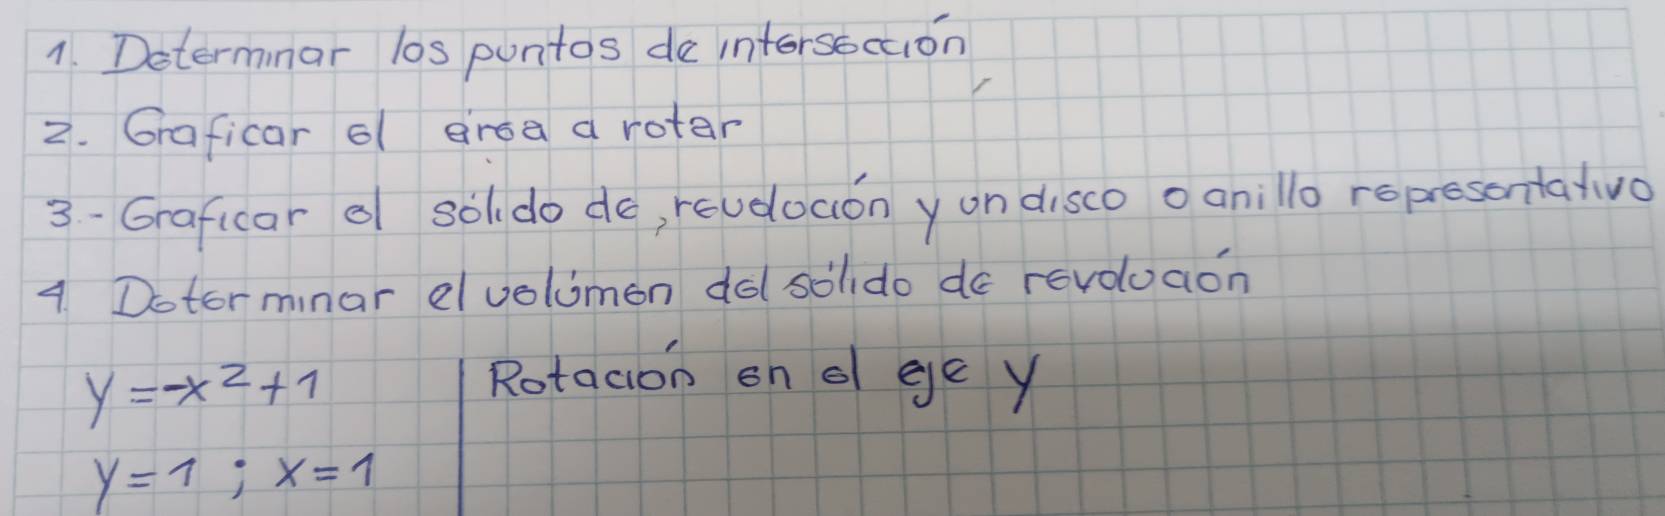 1. Determinar los puntos de intersección
2. Graficar el área a rotar
3.- Graficar el sólido de, revolución y un disco o anillo representativo
4. Determinar el volúmen del sólido de revolución
y = -x² + 1 | Rotación en el eje y
y = 1 ; x = 1